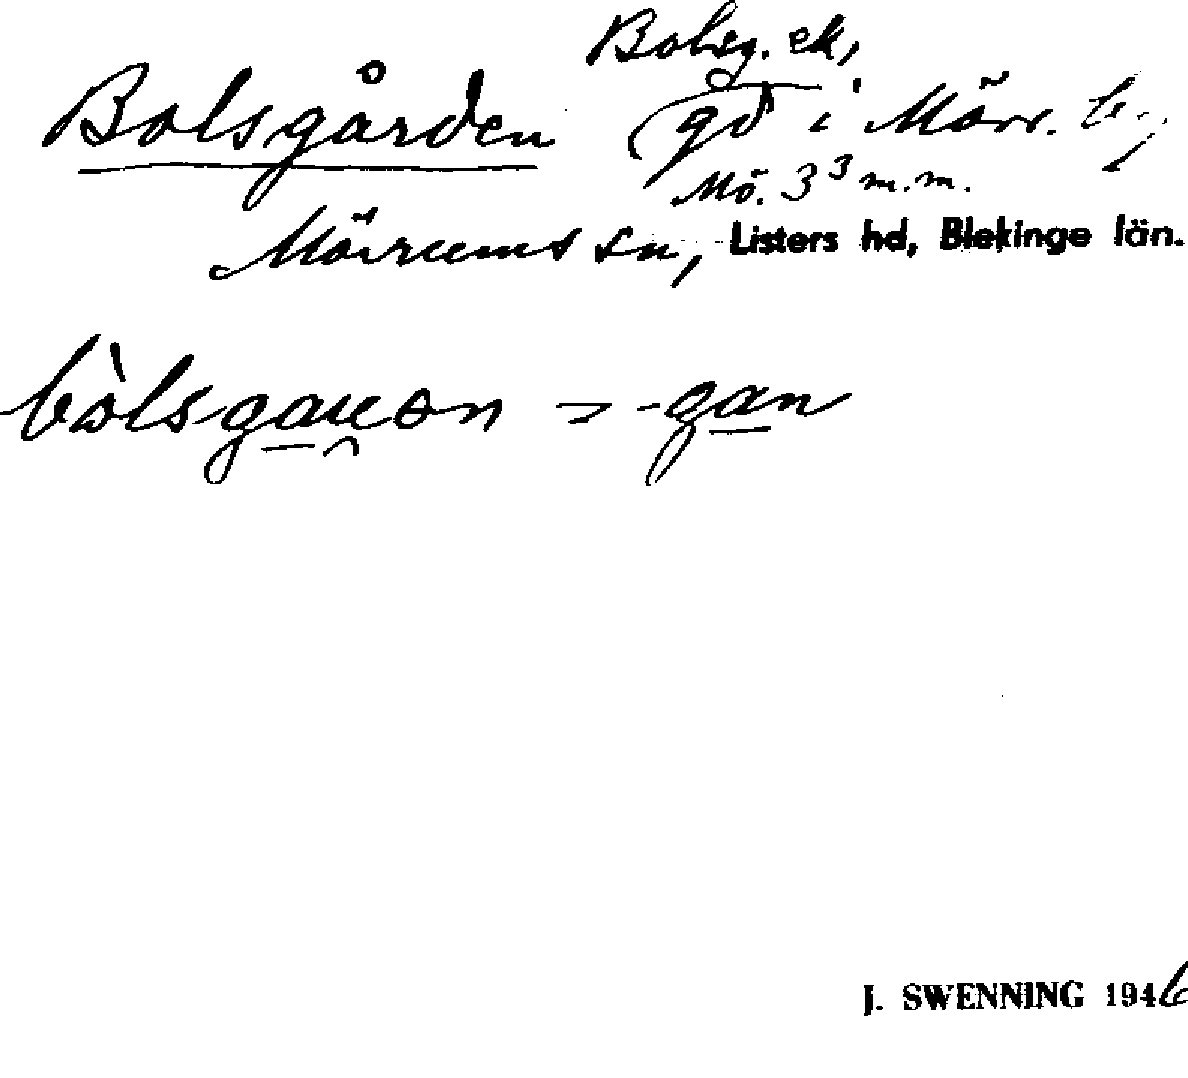 Bolsg. ek,
Bolsgården gd i Mörr. b.,
Mö. 3³ m.m.
Mörrums sn, Listers hd, Blekinge län.
bòlsgau̯ən - -gan
J. SWENNING 1946